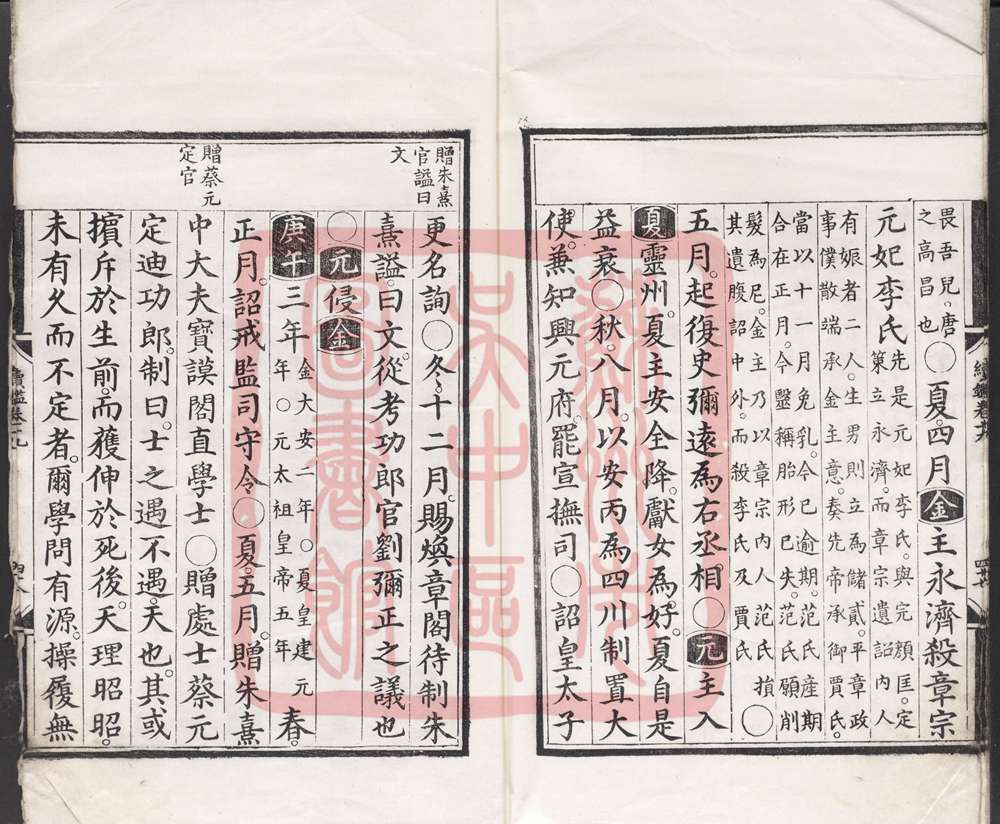 畏吾兒。唐
之高昌也
○夏。四月。金主永濟殺章宗
元妃李氏
先是元妃李氏。與完顏匡。定
策立永濟。而章宗遺詔內人
有娠者二人。生男則立為儲貳。平章政
事僕散端承金主意。奏先帝承御賈氏。
當以十一月免乳。今已逾期。范氏產期
合在正月。今醫稱胎形已失。范氏願削
髮為尼。金主乃以章宗內人范氏損
其遺腹。詔中外。而殺李氏及賈氏
○
五月。起復史彌遠為右丞相○元主入
夏靈州。夏主安全降。獻女為好。夏自是
益衰○秋。八月。以安丙為四川制置大
使。兼知興元府。罷宣撫司○詔皇太子
贈朱熹
官謚曰
文
更名詢○冬。十二月。賜煥章閣待制朱
熹謚。曰文。從考功郎官劉彌正之議也
○元侵金
庚午三年
金大安二年○夏皇建元
年○元太祖皇帝五年
春。
正月。詔戒監司守令○夏。五月。贈朱熹
中大夫寶謨閣直學士○贈處士蔡元
贈蔡元
定官
定迪功郎。制曰。士之遇不遇。天也。其或
擯斥於生前。而獲伸於死後。天理昭昭。
未有久而不定者。爾學問有源。操履無